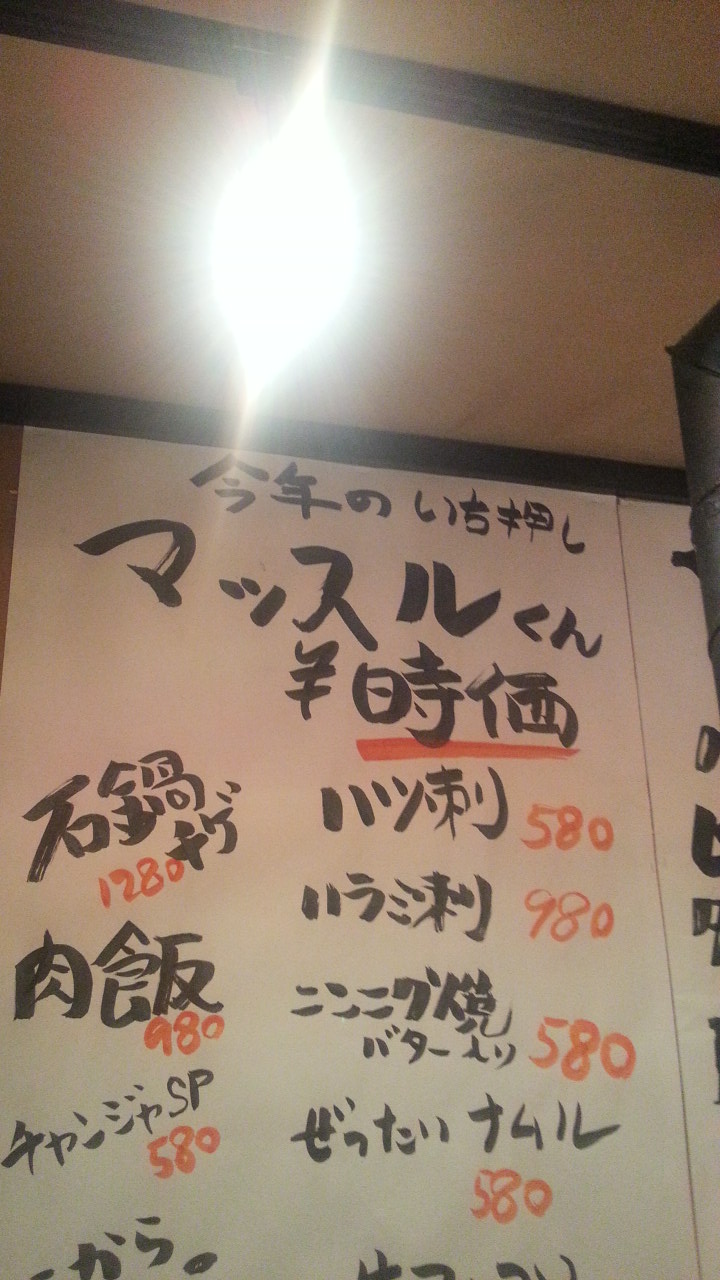 今年のいち押し
マッスルくん
¥時価
石鍋チゲ
1280
肉飯
980
チャンジャSP
580
から。
ハツ刺 580
ハラミ刺 980
ニンニク焼
バター入り 580
ぜったいナムル
580